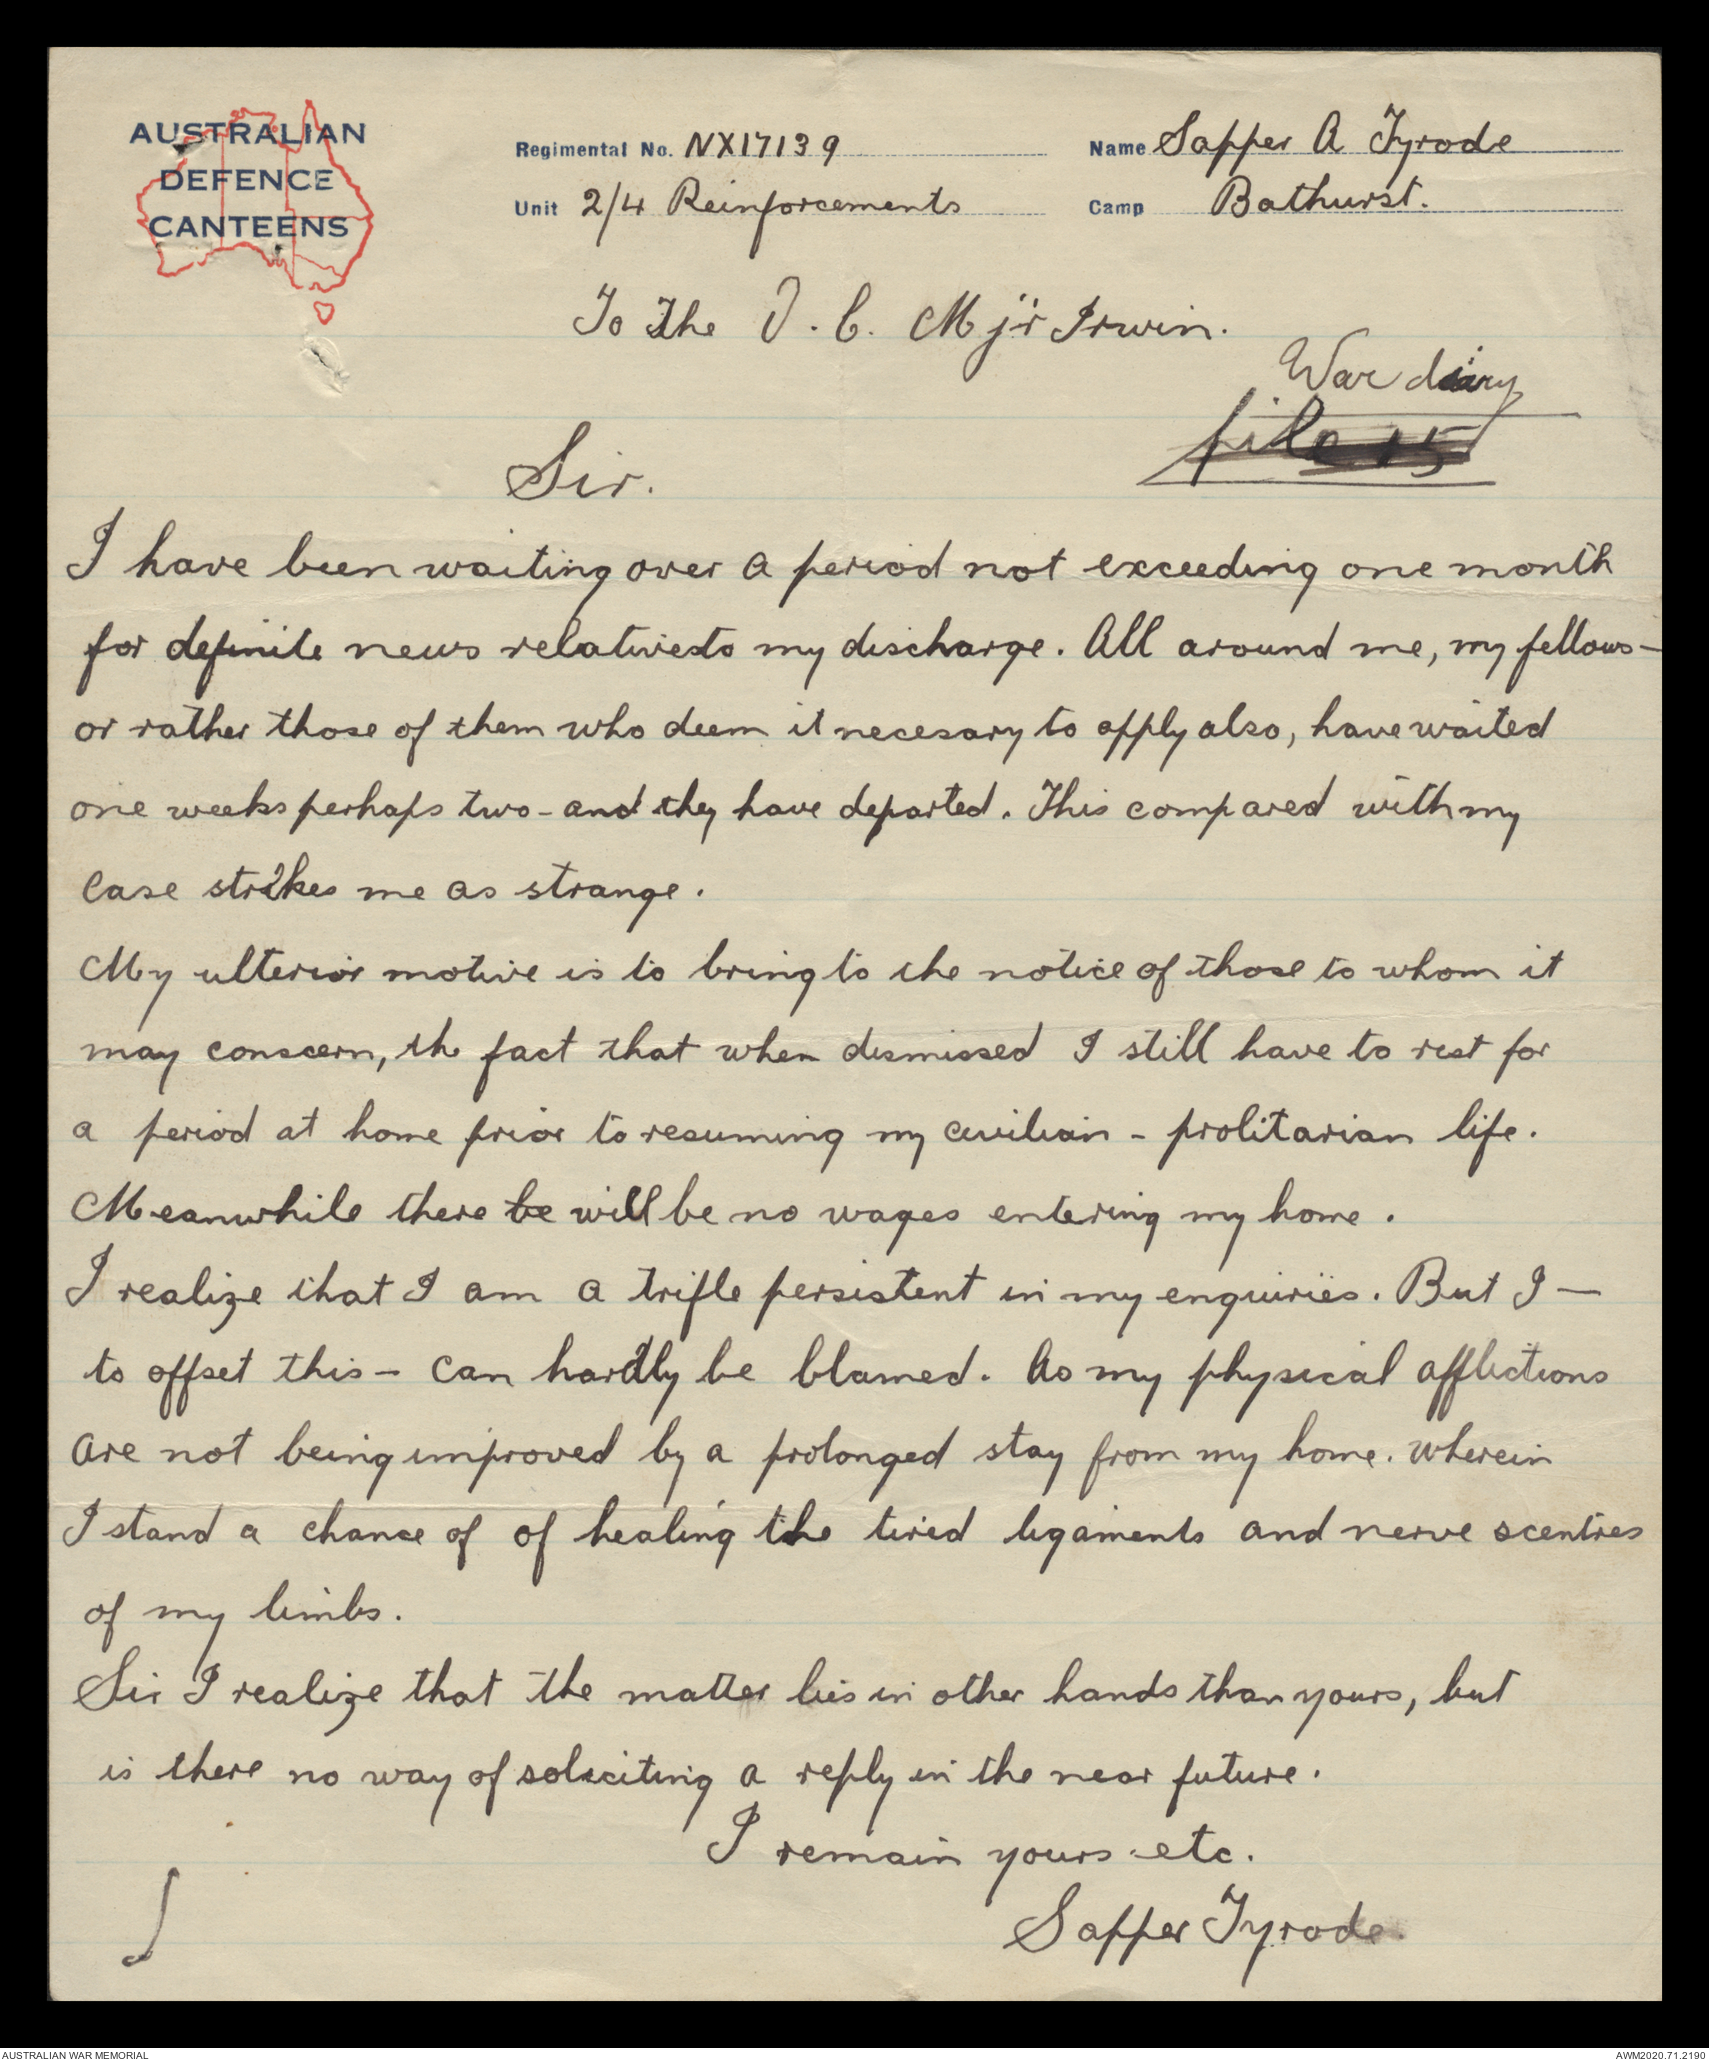 AUSTRALIAN
DEFENCE
CANTEENS
Regimental No. NX17139
Unit 2/4 Reinforcements
Name Sapper A Tyrode
Camp Bathurst.
To The O.C. Mjr Irwin.
War diary
file 15
Sir.
I have been waiting over a period not exceeding one month
for definite news relative to my discharge. All around me, my fellows -
or rather those of them who deem it necesary to apply also, have waited
one weeks perhaps two - and they have departed. This compared with my
case strikes me as strange.
My ulterior motive is to bring to the notice of those to whom it
may conscern, the fact that when dismissed I still have to rest for
a period at home prior to resuming my civilian - prolitarian life.
Meanwhile there be will be no wages entering my home.
I realize that I am a trifle persistent in my enquiries. But I —
to offset this - can hardly be blamed. As my physical afflictions
are not being improved by a prolonged stay from my home. Wherein
I stand a chance of of healing the tired ligaments and nerve scentres
of my limbs.
Sir I realize that the matter lies in other hands than yours, but
is there no way of soliciting a reply in the near future.
I remain yours etc.
Sapper Tyrode.
AUSTRALIAN WAR MEMORIAL
AWM2020.71.2190